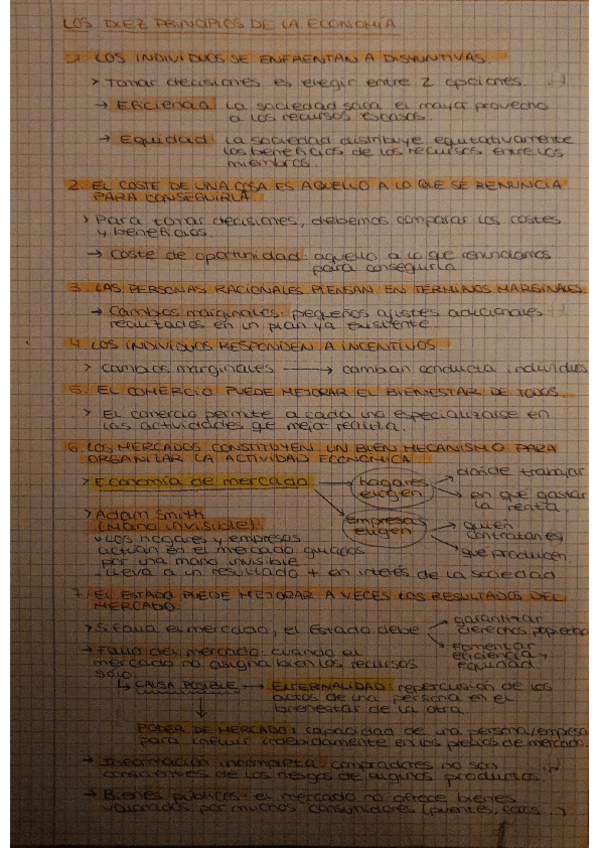 LOS DIEZ PRINCIPIOS DE LA ECONOMÍA
1. LOS INDIVIDUOS SE ENFRENTAN A DISYUNTIVAS.
> Tomar decisiones es elegir entre 2 opciones.
→ Eficiencia: La sociedad saca el mayor provecho
a los recursos escasos.
→ Equidad: La sociedad distribuye equitativamente
los beneficios de los recursos entre los
miembros.
2. EL COSTE DE UNA COSA ES AQUELLO A LO QUE SE RENUNCIA
PARA CONSEGUIRLA
> Para tomar decisiones, debemos comparar los costes
y beneficios.
→ Coste de oportunidad: aquello a lo que renunciamos
para conseguirla
3. LAS PERSONAS RACIONALES PIENSAN EN TÉRMINOS MARGINALES
→ Cambios marginales: pequeños ajustes adicionales
realizados en un plan ya existente.
4. LOS INDIVIDUOS RESPONDEN A INCENTIVOS
> cambios marginales → cambian conducta individuos
5. EL COMERCIO PUEDE MEJORAR EL BIENESTAR DE TODOS.
> El comercio permite a cada uno especializarse en
las actividades que mejor realiza.
6. LOS MERCADOS CONSTITUYEN UN BUEN MECANISMO PARA
ORGANIZAR LA ACTIVIDAD ECONÓMICA
> Economía de mercado
hogares eligen
dónde trabajar
en qué gastar la renta.
empresas eligen
quién contratan
que producen
> Adam Smith
(Mano invisible):
Los hogares y empresas
actúan en el mercado guiados
por una mano invisible
- Lleva a un resultado + en interés de la sociedad
7. EL ESTADO PUEDE MEJORAR A VECES LOS RESULTADOS DEL
MERCADO.
> Si falla el mercado, el Estado debe
garantizar derechos propiedad
Fomentar eficiencia y equidad
→ Fallo del mercado: cuando el
mercado no asigna bien los recursos
solo.
↳ CAUSA POSIBLE → EXTERNALIDAD: repercusión de los
actos de una persona en el
bienestar de la otra.
PODER DE MERCADO: capacidad de una persona/empresa
para influir indebidamente en los precios de mercado.
→ Información incompleta: compradores no son
conscientes de los riesgos de algunos productos.
→ Bienes públicos: el mercado no ofrece bienes
valorados por muchos consumidores (puentes,